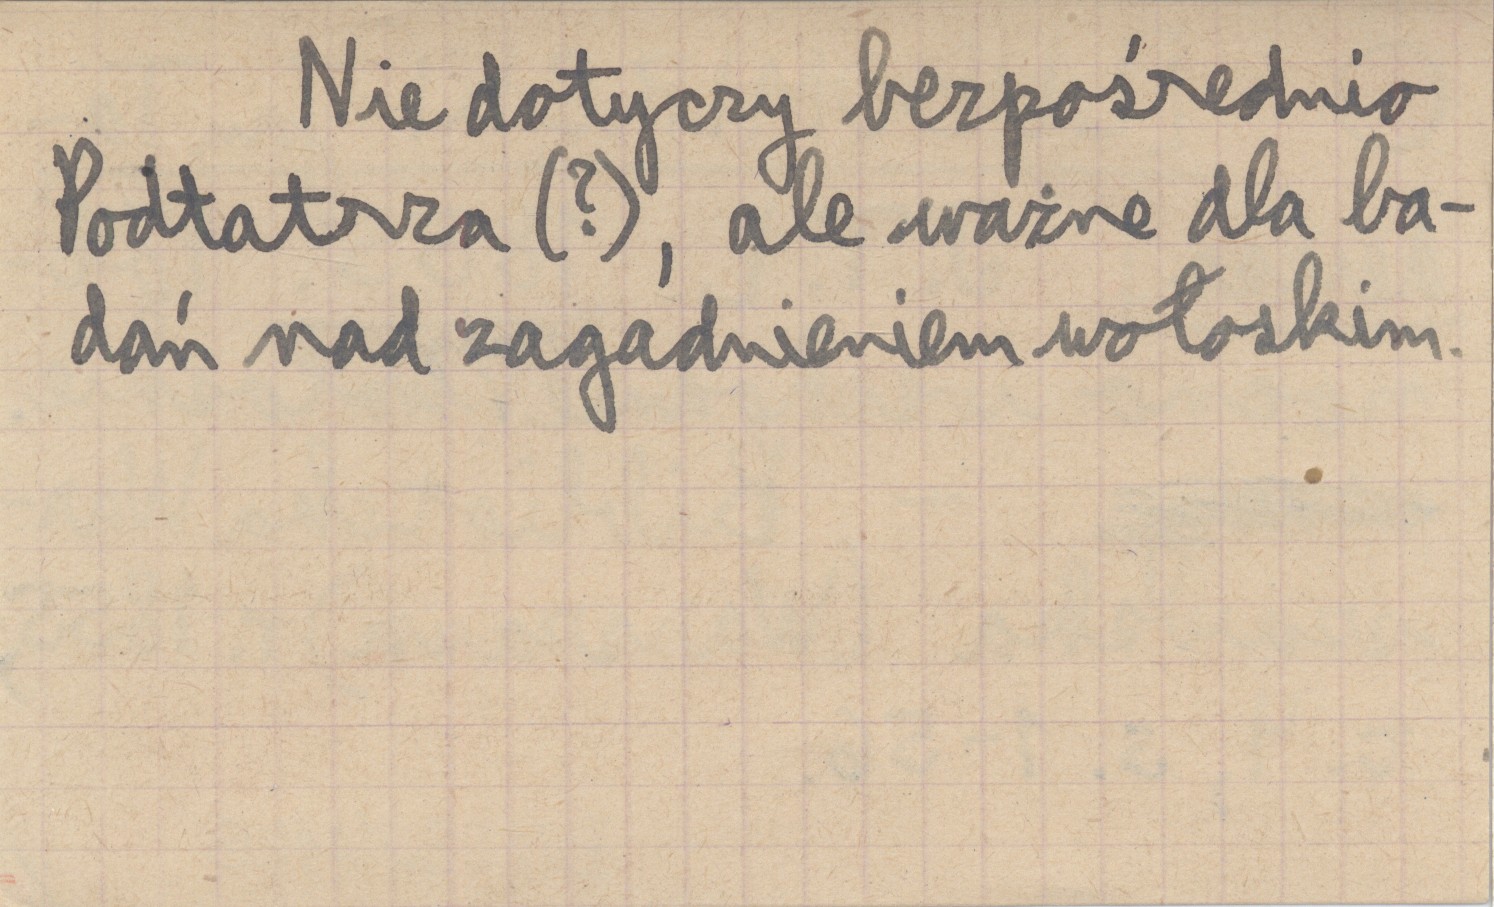 Nie dotyczy bezpośrednio
Podtatrza (?), ale ważne dla ba-
dań nad zagadnieniem wołoskim.